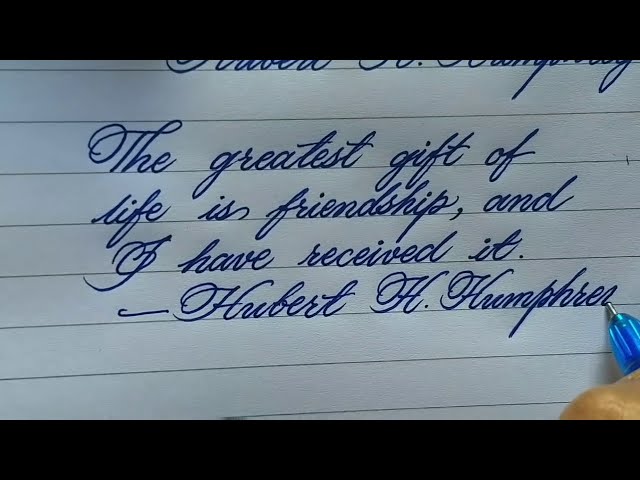 Hubert H. Humphrey
The greatest gift of
life is friendship, and
I have received it.
— Hubert H. Humphre